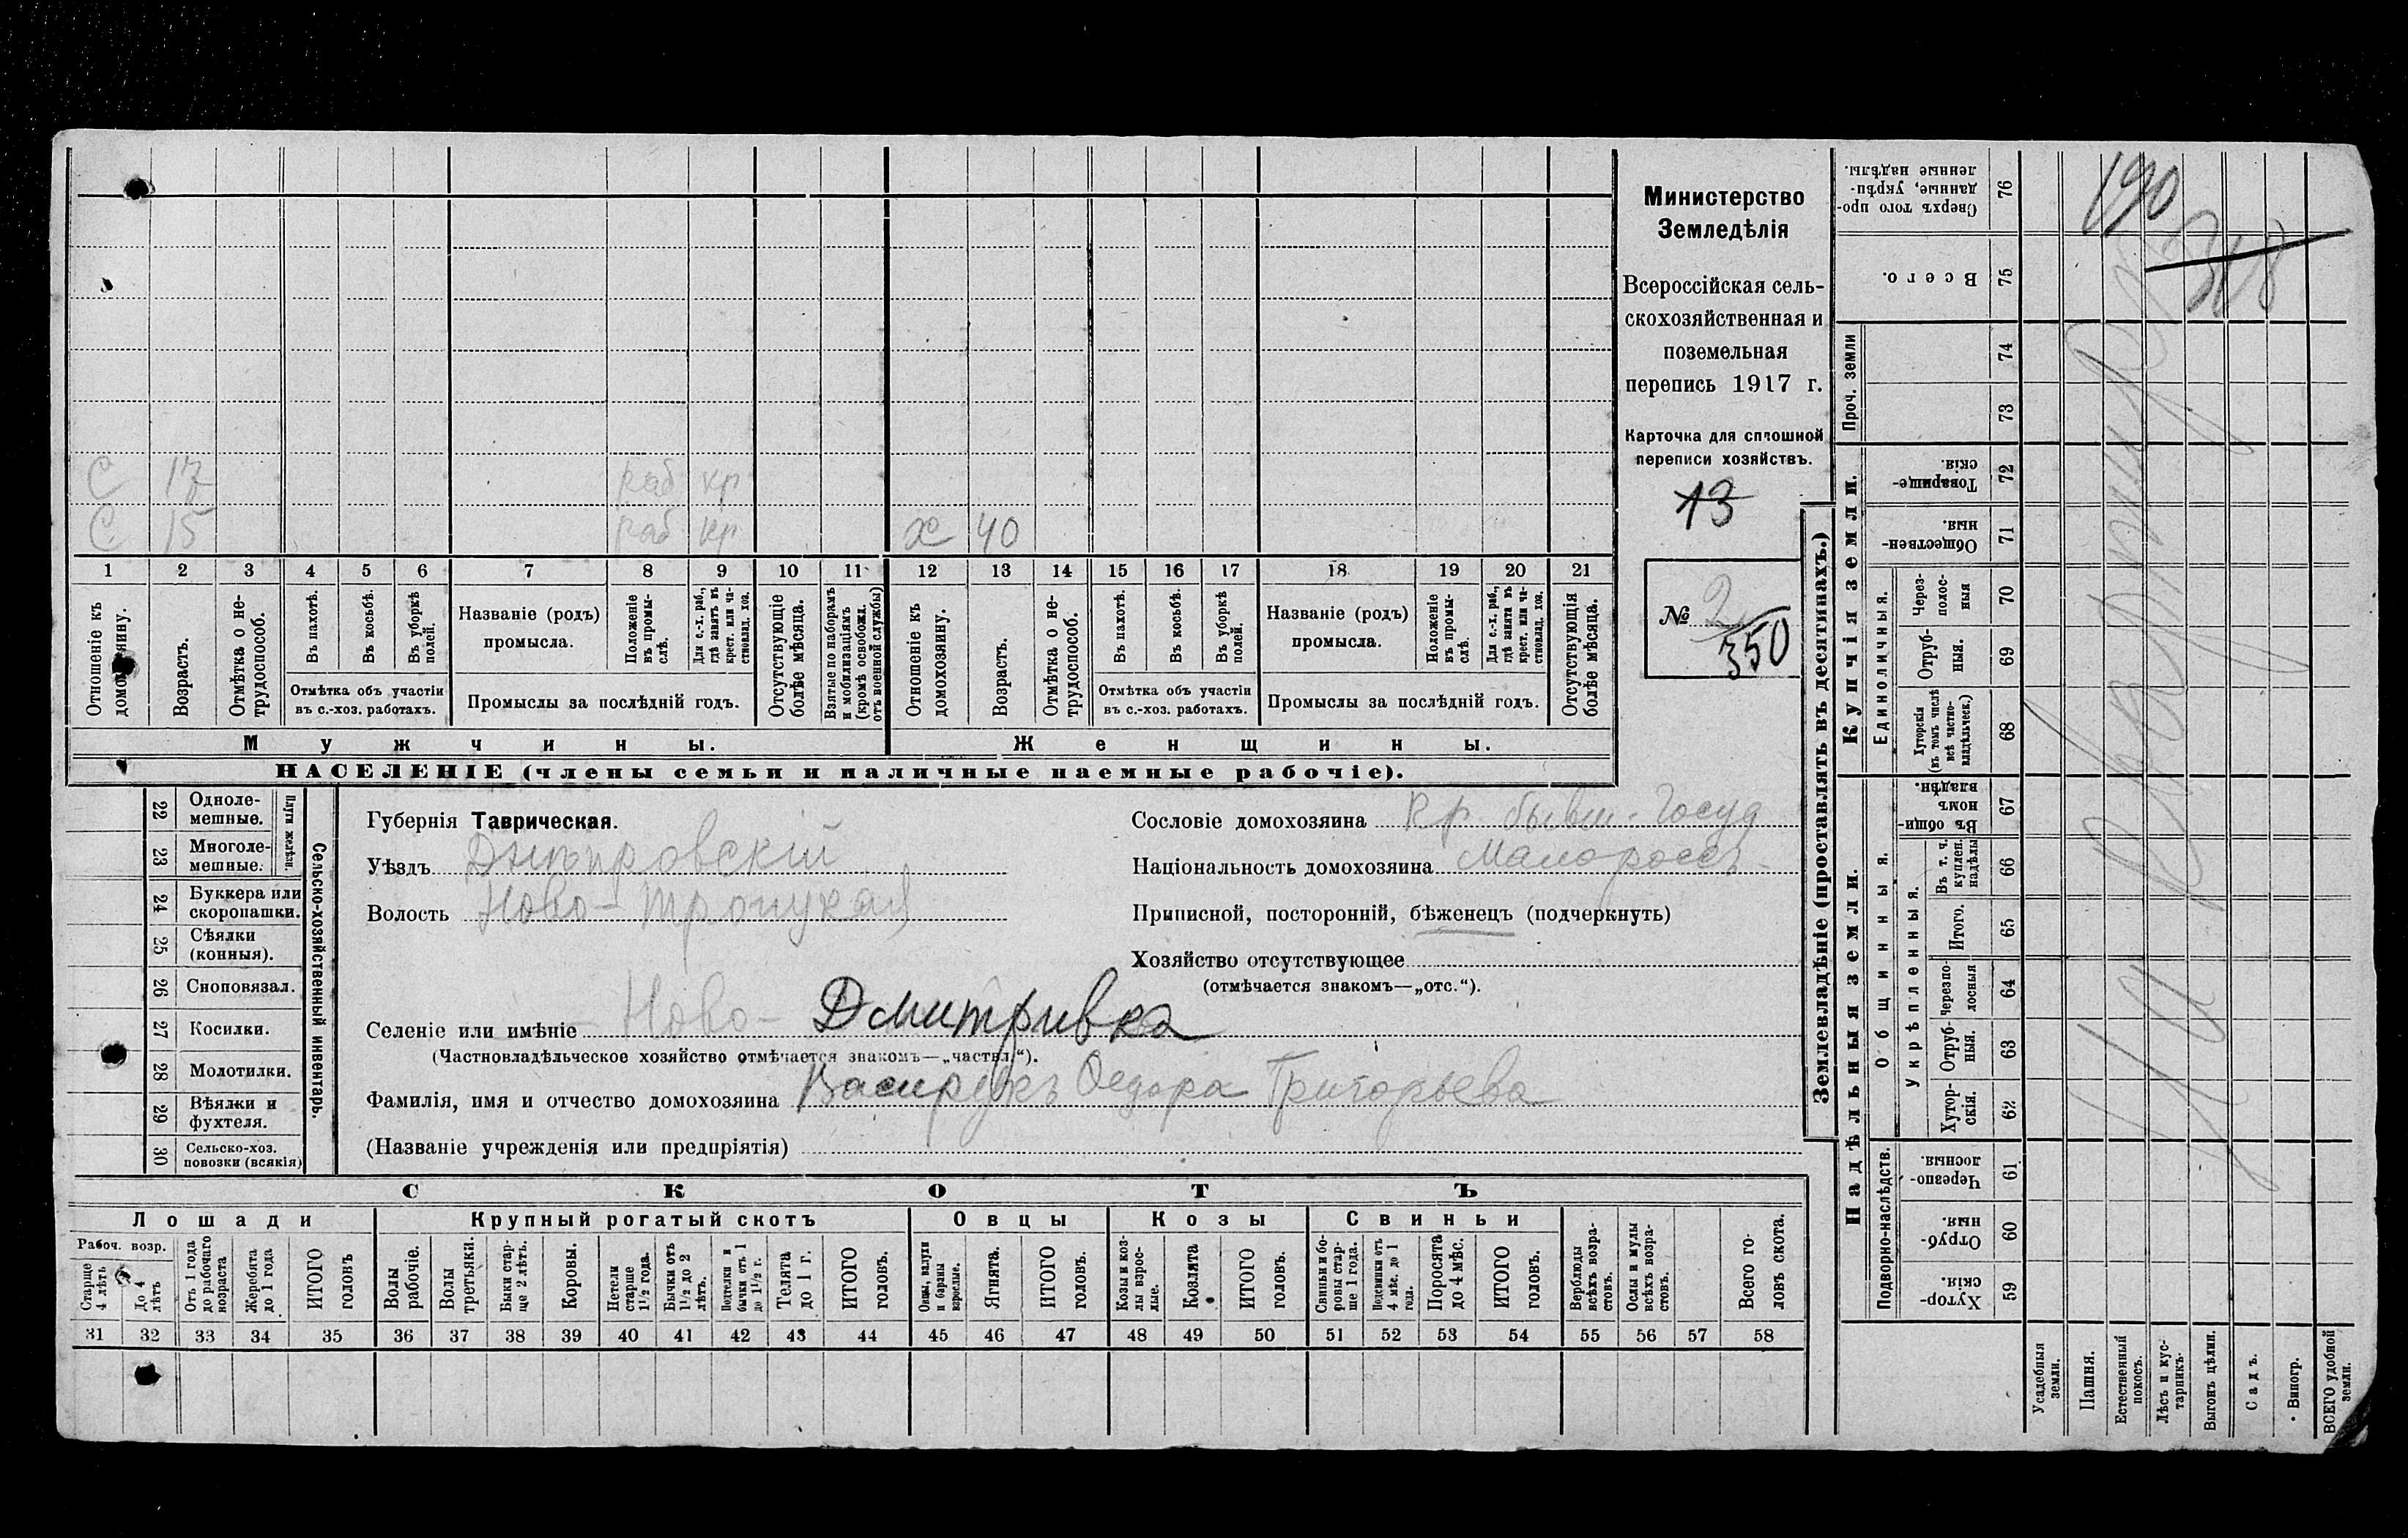 С 17 раб кр
С 15 раб кр х 40
1 2 3 4 5 6 7 8 9 10 11 12 13 14 15 16 17 18 19 20 21
Отношеніе къ домохозяину.
Возрастъ.
Отмѣтка о не-
трудоспособ.
Въ пахотѣ.
Въ косьбѣ.
Въ уборкѣ
полей.
Отмѣтка объ участіи
въ с.-хоз. работахъ.
Названіе (родъ)
промысла.
Положеніе
въ промы-
слѣ.
Для с.-х. раб.,
гдѣ занятъ въ
крест. или ча-
стновлад. хоз.
Промыслы за послѣдній годъ.
Отсутствующіе
болѣе мѣсяца.
Взятые по наборамъ
и мобилизаціямъ
(кромѣ освобожд.
отъ военной службы)
Отношеніе къ
домохозяину.
Возрастъ.
Отмѣтка о не-
трудоспособ.
Въ пахотѣ.
Въ косьбѣ.
Въ уборкѣ
полей.
Отмѣтка объ участіи
въ с.-хоз. работахъ.
Названіе (родъ)
промысла.
Положеніе
въ промы-
слѣ.
Для с.-х. раб.,
гдѣ занята въ
крест. или ча-
стновлад. хоз.
Промыслы за послѣдній годъ.
Отсутствующія
болѣе мѣсяца.
Мужчины.
Женщины.
НАСЕЛЕНІЕ (члены семьи и наличные наемные рабочіе).
Министерство
Земледѣлія
Всероссійская сель-
скохозяйственная и
поземельная
перепись 1917 г.
Карточка для сплошной
переписи хозяйствъ.
13
№ 2
350
22 Одноле-
мешные.
23 Многоле-
мешные.
Плуги желѣзн.
24 Буккера или
скоропашки.
25 Сѣялки
(конныя).
26 Сноповязал.
27 Косилки.
28 Молотилки.
29 Вѣялки и
фухтеля.
30 Сельско-хоз.
повозки (всякія)
Сельско-хозяйственный инвентарь.
Губернія Таврическая.
Уѣздъ Днѣпровскій
Волость Ново-Троицкая
Селеніе или имѣніе Ново-Дмитривка
(Частновладѣльческое хозяйство отмѣчается знакомъ—„частвл.“).
Фамилія, имя и отчество домохозяина Федора Григорьева
(Названіе учрежденія или предпріятія)
Сословіе домохозяина Кр. бывш. Госуд
Національность домохозяина Малороссъ
Приписной, посторонній, бѣженецъ (подчеркнуть)
Хозяйство отсутствующее
(отмѣчается знакомъ—„отс.“).
СКОТЪ
Лошади
Рабоч. возр.
Старше
4 лѣтъ
До 4
лѣтъ
Отъ 1 года
до рабочаго
возраста
Жеребята
до 1 года
ИТОГО
головъ
Крупный рогатый скотъ
Волы
рабочіе.
Волы
третьяки.
Быки стар-
ще 2 лѣтъ.
Коровы.
Нетели
старше
1½ года.
Бычки отъ
1½ до 2
лѣтъ.
Подтелки и
бычки отъ 1
до 1½ г.
Телята
до 1 г.
ИТОГО
головъ.
Овцы
Овцы, валухи
и бараны
взрослые.
Ягнята.
ИТОГО
головъ.
Козы
Козы и коз-
лы взрос-
лые.
Козлята
ИТОГО
головъ.
Свиньи
Свиньи и бо-
ровы стар-
ше 1 года.
Подсвинки отъ
4 мѣс. до 1
года.
Поросята
до 4 мѣс.
ИТОГО
головъ.
Верблюды
всѣхъ возра-
стовъ.
Ослы и мулы
всѣхъ возра-
стовъ.
Всего го-
ловъ скота.
31 32 33 34 35 36 37 38 39 40 41 42 43 44 45 46 47 48 49 50 51 52 53 54 55 56 57 58
Землевладѣніе (проставлять въ десятинахъ.)
Сверхъ того про-
данные, укрѣп-
ленные надѣлы.
76
190
318
Всего.
75
Проч. земли
74
73
Купчія земли.
Товарище-
скія.
72
Обществен-
ныя.
71
Единоличныя.
Через-
полос-
ныя
70
Отруб-
ныя.
69
Хуторскія
(въ томъ числѣ
всѣ частно-
владѣльческ.)
68
Надѣльныя земли.
Общинныя.
Въ общи-
номъ
владѣн.
67
Укрѣпленныя.
Въ т. ч.
куплен.
надѣлы
66
Итого.
65
Черезпо-
лосныя
64
Отруб-
ныя.
63
Хутор-
скія.
62
Подворно-наслѣдств.
Черезпо-
лосныя.
61
Отруб-
ныя.
60
Хутор-
скія.
59
На квартире
Усадебныя
земли.
Пашня.
Естественный
покосъ.
Лѣсъ и кус-
тарникъ.
Выгонъ цѣлин.
Садъ.
Виногр.
ВСЕГО удобной
земли.